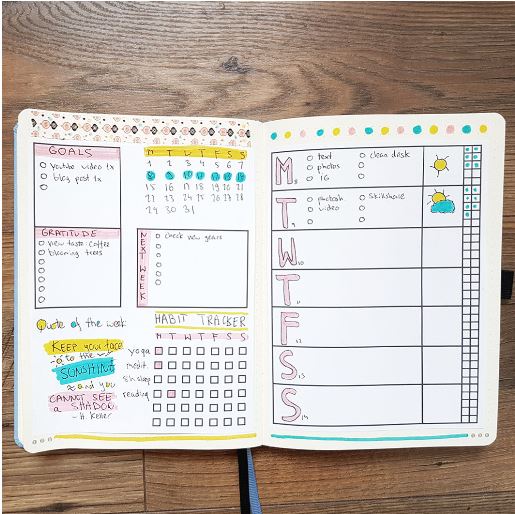 GOALS
youtube video 1x
blog post 1x
M T W T F S S
1 2 3 4 5 6 7
8 9 10 11 12 13 14
15 16 17 18 19 20 21
22 23 24 25 26 27 28
29 30 31
GRATITUDE
new taste: coffee
blooming trees
NEXT WEEK
check new gears
Quote of the week
KEEP your face
to the
SUNSHINE
and you
CANNOT SEE
a SHADOW
- H. Keller
HABIT TRACKER
M T W T F S S
yoga
medit.
8h sleep
reading
M 8
text
photos
IG
clean desk
T 9
photosh.
video
Skillshare
W 10
T 11
F 12
S 13
S 14